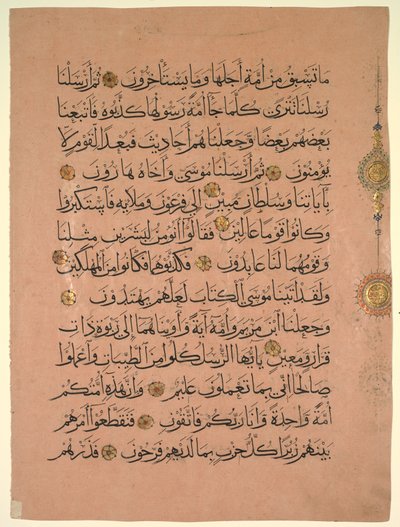 ما تسبق من أمة أجلها وما يستأخرون ثم أرسلنا
رسلنا تترى كلما جاء أمة رسولها كذبوه فأتبعنا
بعضهم بعضا وجعلناهم أحاديث فبعدا لقوم لا
يؤمنون ثم أرسلنا موسى وأخاه هارون
بآياتنا وسلطان مبين إلى فرعون وملايه فاستكبروا
وكانوا قوما عالين فقالوا أنؤمن لبشرين مثلنا
وقومهما لنا عابدون فكذبوهما فكانوا من المهلكين
ولقد آتينا موسى الكتاب لعلهم يهتدون
وجعلنا ابن مريم وأمه آية وآويناهما إلى ربوة ذات
قرار ومعين يا أيها الرسل كلوا من الطيبات واعملوا
صالحا إني بما تعملون عليم وإن هذه أمتكم
أمة واحدة وأنا ربكم فاتقون فتقطعوا أمرهم
بينهم زبرا كل حزب بما لديهم فرحون فذرهم